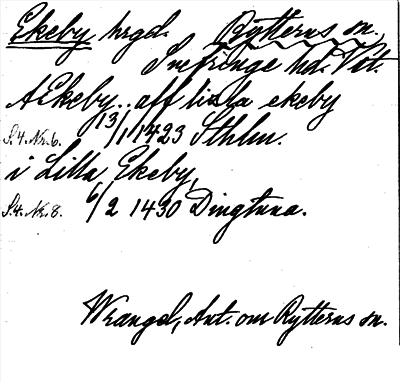 Ekeby hrgd. Rytterns sn.,
Snefringe hd. Vst.
A Ekeby.. aff lisla ekeby
S.4. Nr. 6. 13/1 1423 Sthlm.
i Lilla Ekeby,
S.4. Nr. 8. 6/2 1430 Dingtuna.
Wrangel, Ant. om Rytterns sn.